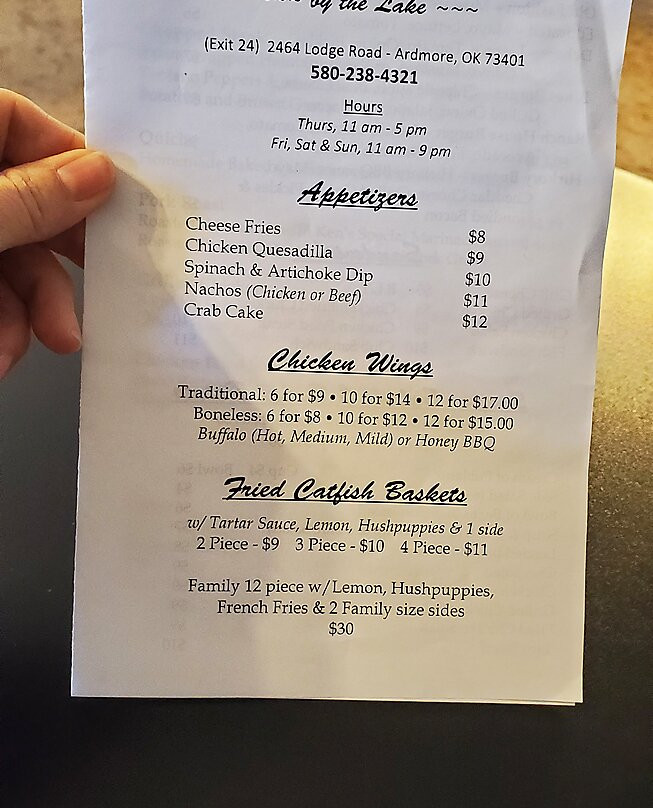 by the Lake ~~~
(Exit 24) 2464 Lodge Road - Ardmore, OK 73401
580-238-4321
Hours
Thurs, 11 am - 5 pm
Fri, Sat & Sun, 11 am - 9 pm
Appetizers
Cheese Fries $8
Chicken Quesadilla $9
Spinach & Artichoke Dip $10
Nachos (Chicken or Beef) $11
Crab Cake $12
Chicken Wings
Traditional: 6 for $9 • 10 for $14 • 12 for $17.00
Boneless: 6 for $8 • 10 for $12 • 12 for $15.00
Buffalo (Hot, Medium, Mild) or Honey BBQ
Fried Catfish Baskets
w/ Tartar Sauce, Lemon, Hushpuppies & 1 side
2 Piece - $9 3 Piece - $10 4 Piece - $11
Family 12 piece w/Lemon, Hushpuppies,
French Fries & 2 Family size sides
$30